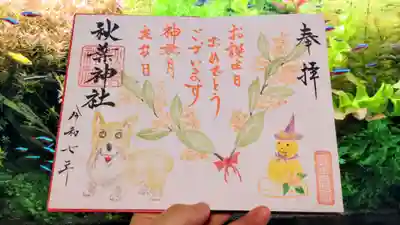 奉拝
お誕生日
おめでとう
ございます
神無月
秋葉神社
令和七年